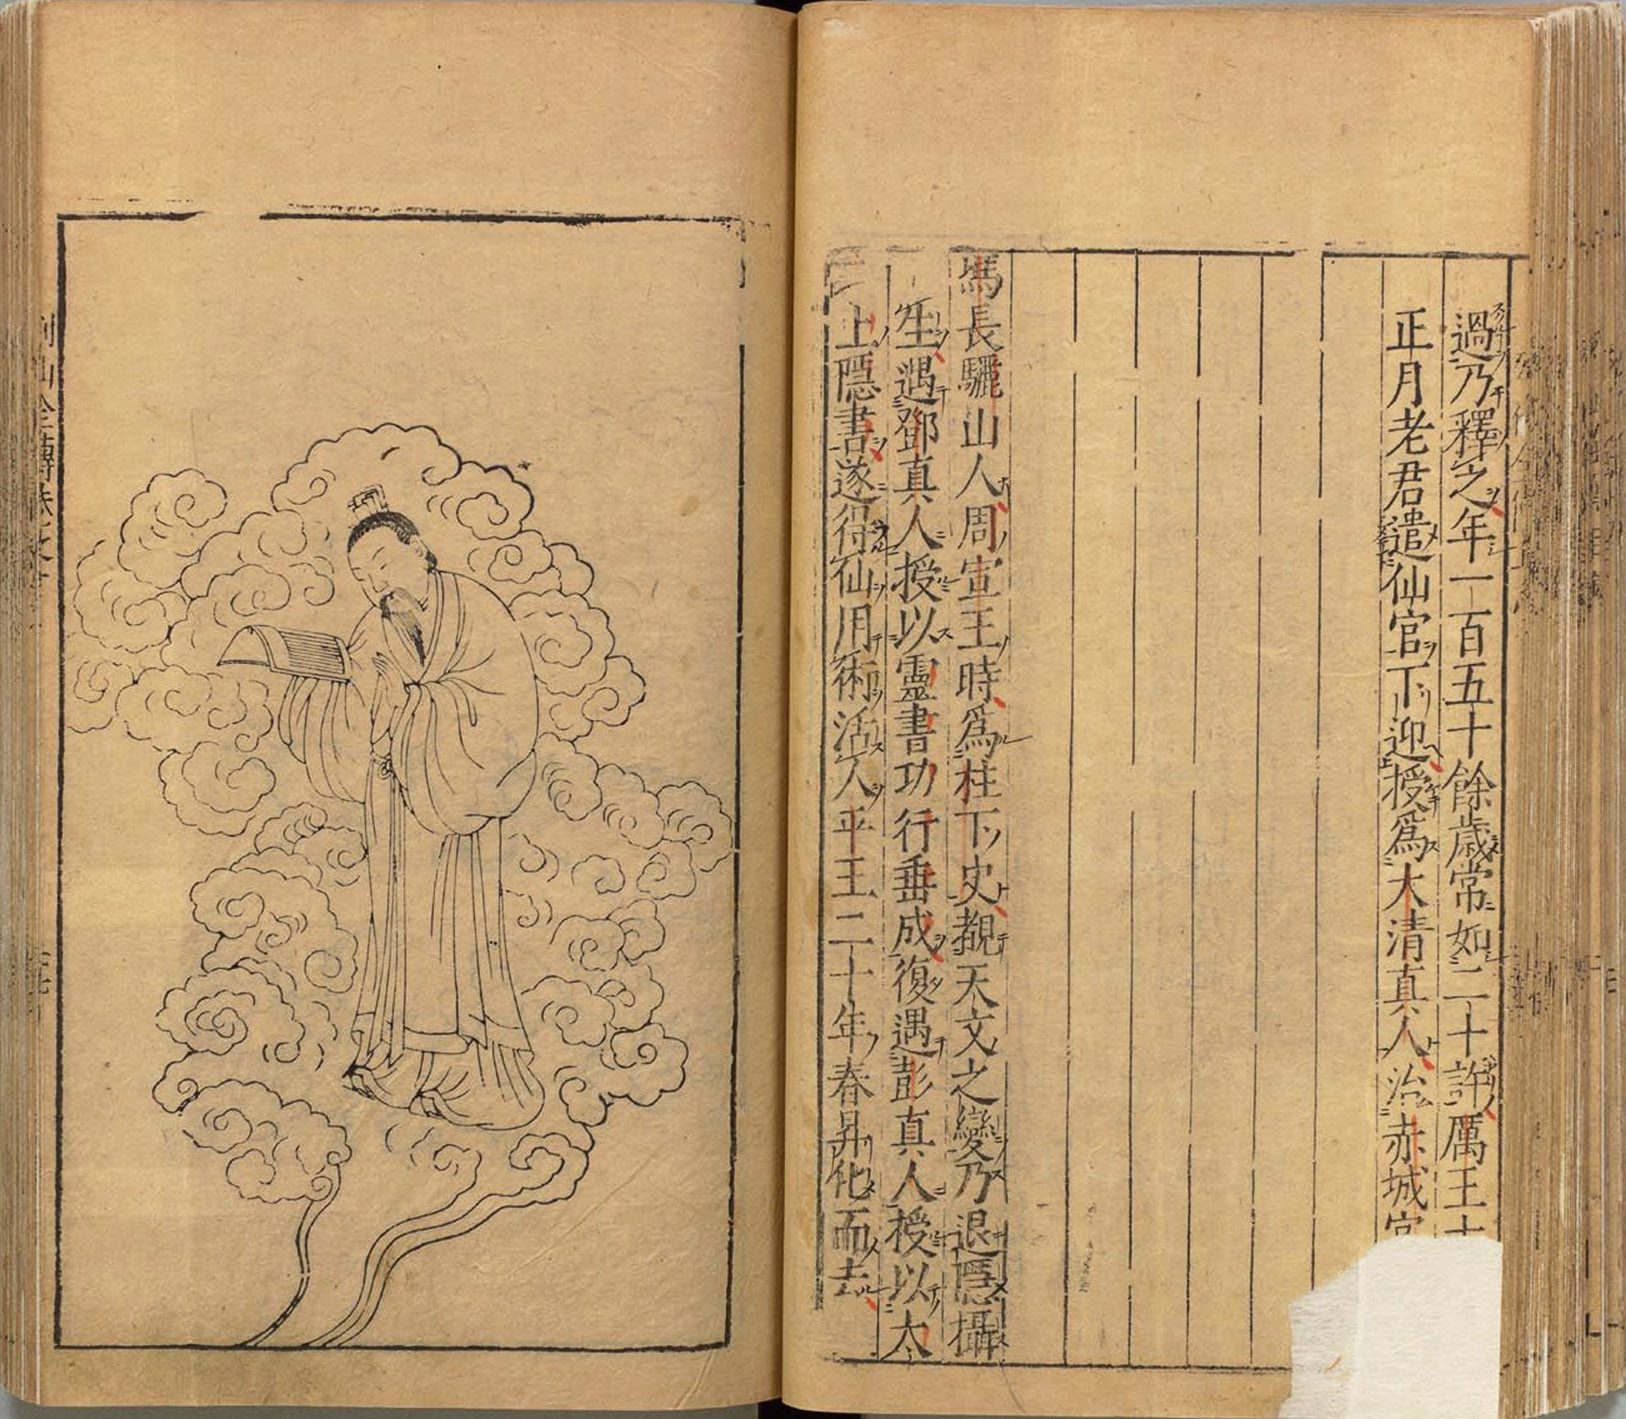 過乃釋之年一百五十餘歲常如二十許厲王十
正月老君遣仙官下迎授爲太清真人治赤城宮
馮長驪山人周宣王時爲柱下史覩天文之變乃退隱攝
生遇鄧真人授以靈書功行垂成復遇彭真人授以太
上隱書遂得仙用術活人平王二十年春昇化而去
列仙全傳卷之一